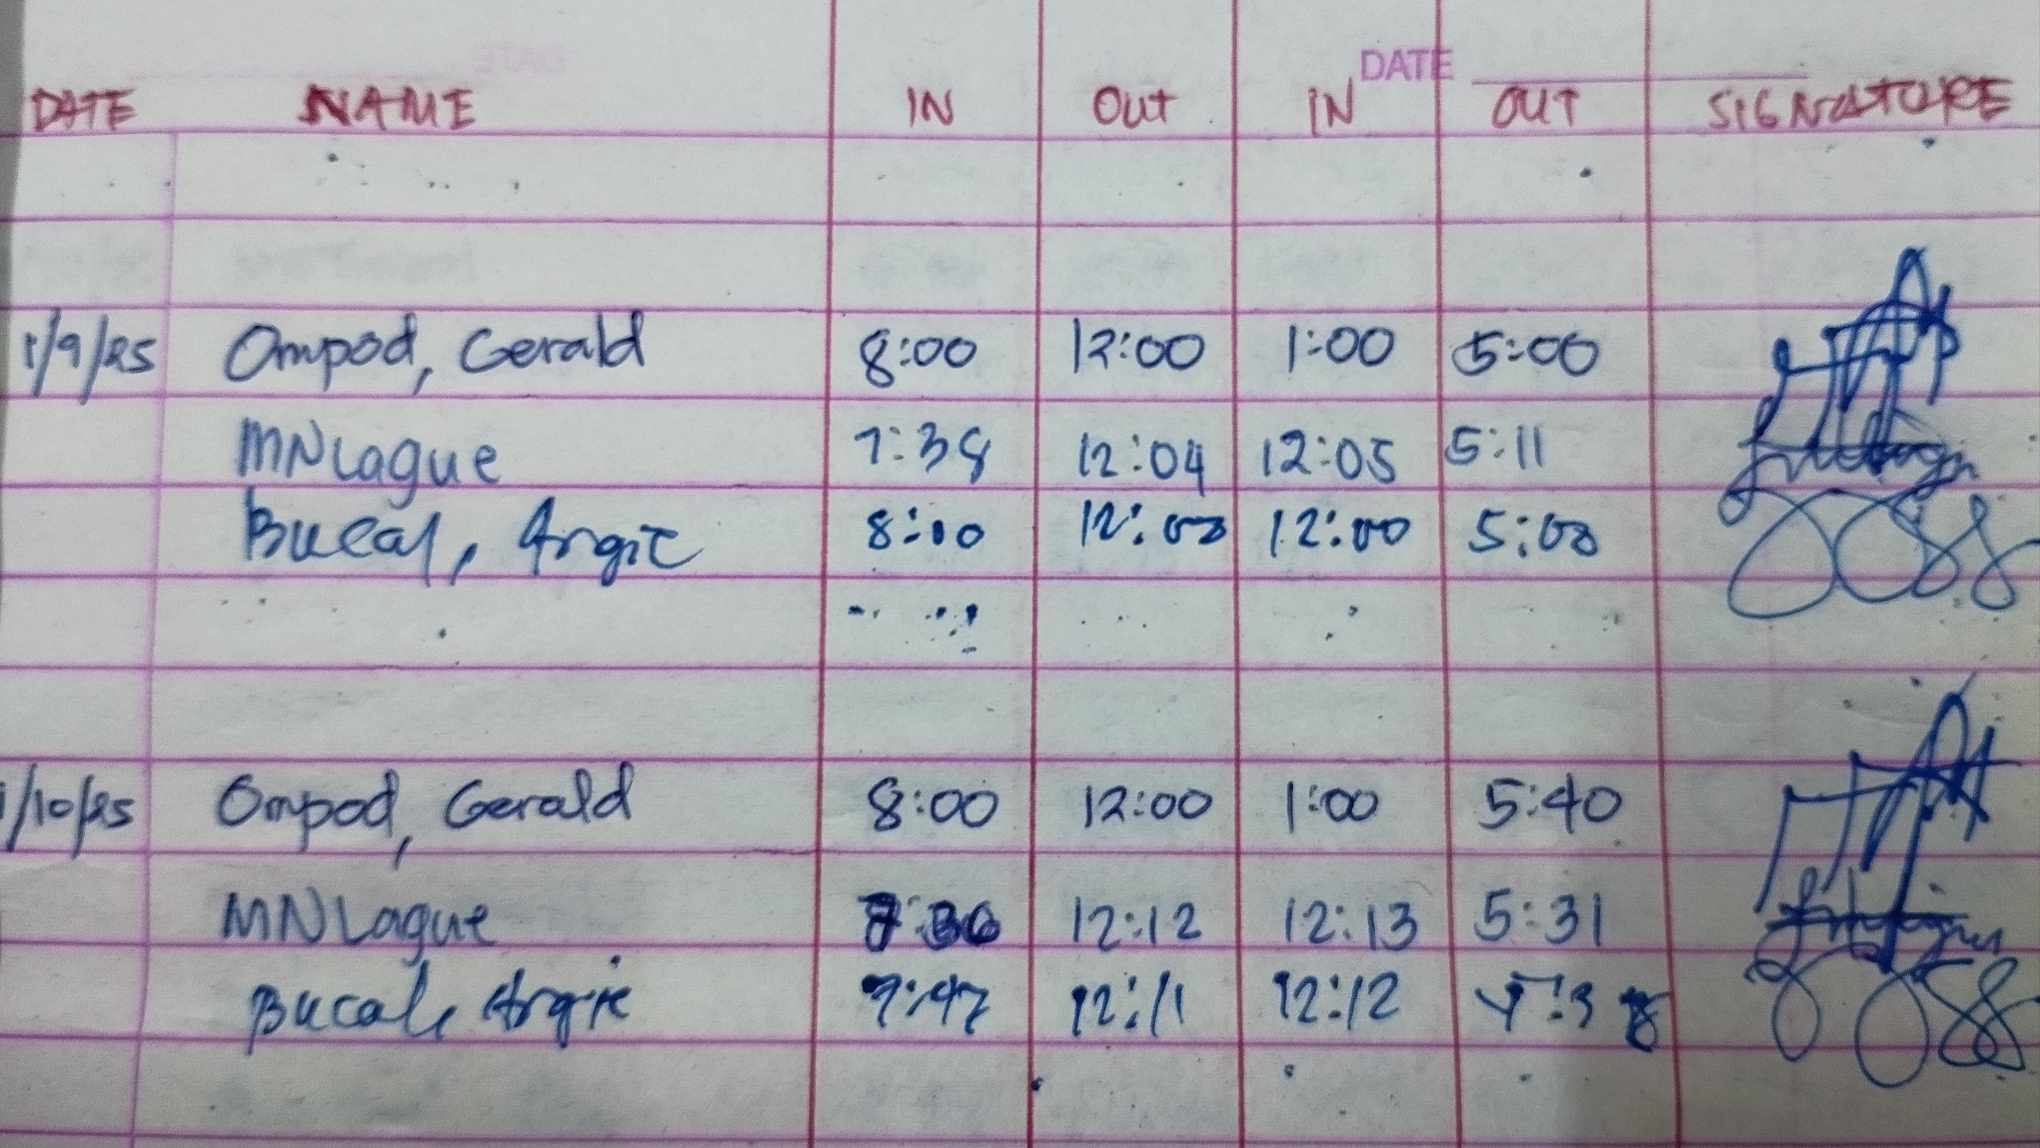 DATE
DATE NAME IN OUT IN OUT SIGNATURE
1/9/25 Ompod, Gerald 8:00 12:00 1:00 5:00
MNLague 7:38 12:04 12:05 5:11
Bucal, Argie 8:00 12:00 12:00 5:00
1/10/25 Ompod, Gerald 8:00 12:00 1:00 5:40
MNLague 12:12 12:13 5:31
Bucal, Argie 7:47 12:11 12:12